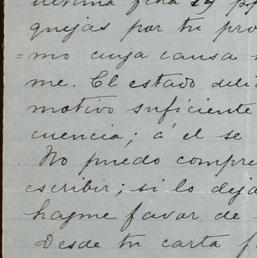 última fecha 29 pp
quejas por tu pro
= mo cuya causa
me. El estado deli
motivo suficiente
cuencia; á el se
No puedo compre
escribir; si lo deja
hagme favor de
Desde tu carta f